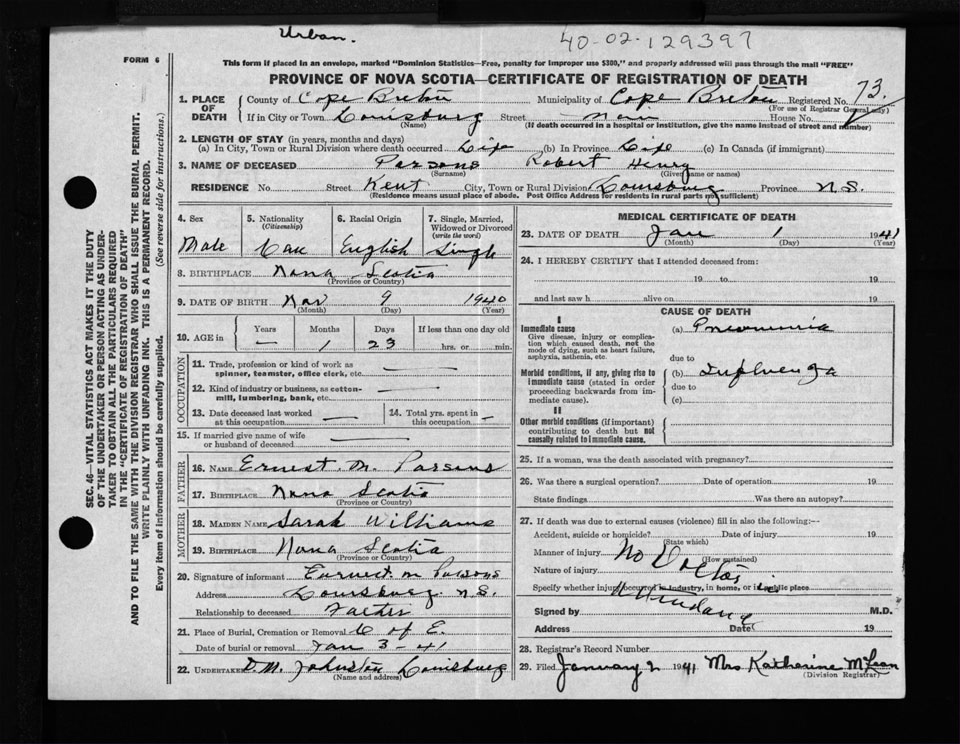 Urban.
40-02-129397
FORM 6
This form if placed in an envelope, marked "Dominion Statistics—Free, penalty for improper use $300," and properly addressed will pass through the mail "FREE"
PROVINCE OF NOVA SCOTIA—CERTIFICATE OF REGISTRATION OF DEATH
1. PLACE OF DEATH County of Cape Breton Municipality of Cape Breton Registered No. 73.
(For use of Registrar General only)
If in City or Town Louisburg Street Main House No.
(Name) (If death occurred in a hospital or institution, give the name instead of street and number)
2. LENGTH OF STAY (in years, months and days)
(a) In City, Town or Rural Division where death occurred Life (b) In Province Life (c) In Canada (if immigrant)
3. NAME OF DECEASED Parsons Robert Henry
(Surname) (Given name or names)
RESIDENCE No. Street Kent City, Town or Rural Division Louisburg Province N.S.
(Residence means usual place of abode. Post Office Address for residents in rural parts not sufficient)
SEC. 46—VITAL STATISTICS ACT MAKES IT THE DUTY
OF THE UNDERTAKER OR PERSON ACTING AS UNDER-
TAKER TO OBTAIN ALL THE PARTICULARS REQUIRED
IN THE "CERTIFICATE OF REGISTRATION OF DEATH"
AND TO FILE THE SAME WITH THE DIVISION REGISTRAR WHO SHALL ISSUE THE BURIAL PERMIT.
WRITE PLAINLY WITH UNFADING INK. THIS IS A PERMANENT RECORD.
Every item of information should be carefully supplied. (See reverse side for instructions.)
4. Sex 5. Nationality 6. Racial Origin 7. Single, Married,
(Citizenship) Widowed or Divorced
(write the word)
Male Can English Single
8. BIRTHPLACE Nova Scotia
(Province or Country)
9. DATE OF BIRTH Nov 9 1940
(Month) (Day) (Year)
10. AGE in Years Months Days If less than one day old
— 1 23 hrs. or min.
OCCUPATION
11. Trade, profession or kind of work as
spinner, teamster, office clerk, etc. —
12. Kind of industry or business, as cotton-
mill, lumbering, bank, etc. —
13. Date deceased last worked 14. Total yrs. spent in
at this occupation — this occupation —
15. If married give name of wife
or husband of deceased —
FATHER
16. NAME Ernest. M. Parsons
17. BIRTHPLACE Nova Scotia
(Province or Country)
MOTHER
18. MAIDEN NAME Sarah Williams
19. BIRTHPLACE Nova Scotia
(Province or Country)
20. Signature of informant Earnest M Parsons
Address Louisburg. N.S.
Relationship to deceased Father
21. Place of Burial, Cremation or Removal C of E.
Date of burial or removal Jan 3 - 41
22. UNDERTAKER D.M. Johnston Louisburg
(Name and address)
MEDICAL CERTIFICATE OF DEATH
23. DATE OF DEATH Jan 1 1941
(Month) (Day) (Year)
24. I HEREBY CERTIFY that I attended deceased from:
19 to 19
and last saw h alive on 19
CAUSE OF DEATH
I
Immediate cause (a) Pneumonia
Give disease, injury or complica-
tion which caused death, not the
mode of dying, such as heart failure,
asphyxia, asthenia, etc. due to
Morbid conditions, if any, giving rise to (b) Influenza
immediate cause (stated in order due to
proceeding backwards from im-
mediate cause). (c)
II
Other morbid conditions (if important)
contributing to death but not
causally related to immediate cause.
25. If a woman, was the death associated with pregnancy?
26. Was there a surgical operation? Date of operation 19
State findings Was there an autopsy?
27. If death was due to external causes (violence) fill in also the following:—
Accident, suicide or homicide? Date of injury 19
(State which)
Manner of injury No Doctor in
(How sustained)
Nature of injury
Specify whether injury occurred in industry, in home, or in public place
Attendance
Signed by M.D.
Address Date 19
28. Registrar's Record Number
29. Filed January 2 1941 Mrs Katharine McLean
(Division Registrar)